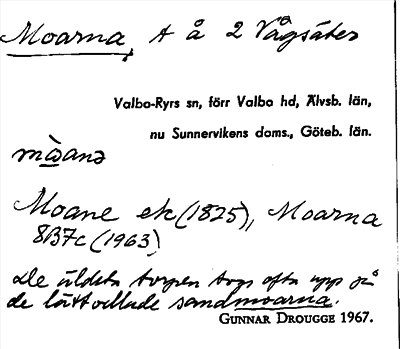 Moarna, t å 2 Vågsäter
Valbo-Ryrs sn, förr Valbo hd, Älvsb. län,
nu Sunnervikens doms., Göteb. län.
mòanə
Moane ek (1825), Moarna
8B7c (1963)
De äldsta torpen togs ofta upp på
de lättodlade sandmoarna.
GUNNAR DROUGGE 1967.